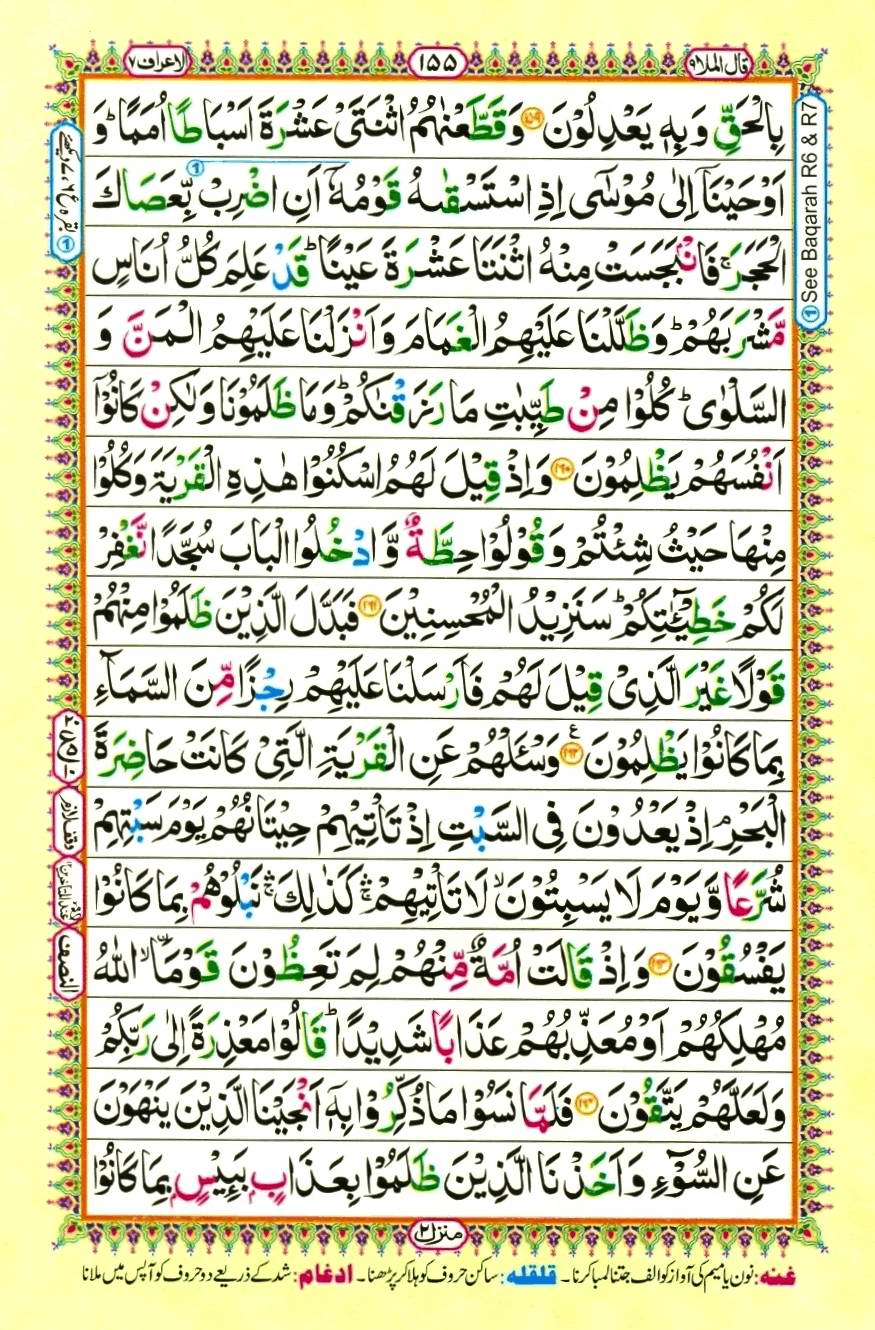 قال الملا ۹
۱۵۵
الاعراف ۷
بِالْحَقِّ وَ بِهٖ يَعْدِلُوْنَ ۝۱۵۹ وَ قَطَّعْنٰهُمُ اثْنَتَیْ عَشْرَةَ اَسْبَاطًا اُمَمًاؕ وَ
اَوْحَيْنَاۤ اِلٰی مُوْسٰۤی اِذِ اسْتَسْقٰىهُ قَوْمُهٗۤ اَنِ اضْرِبْ بِّعَصَاكَ
الْحَجَرَۚ فَانْۢبَجَسَتْ مِنْهُ اثْنَتَا عَشْرَةَ عَيْنًاؕ قَدْ عَلِمَ كُلُّ اُنَاسٍ
مَّشْرَبَهُمْؕ وَ ظَلَّلْنَا عَلَيْهِمُ الْغَمَامَ وَ اَنْزَلْنَا عَلَيْهِمُ الْمَنَّ وَ
السَّلْوٰیؕ كُلُوْا مِنْ طَيِّبٰتِ مَا رَزَقْنٰكُمْؕ وَ مَا ظَلَمُوْنَا وَ لٰكِنْ كَانُوْۤا
اَنْفُسَهُمْ يَظْلِمُوْنَ ۝۱۶۰ وَ اِذْ قِيْلَ لَهُمُ اسْكُنُوْا هٰذِهِ الْقَرْيَةَ وَ كُلُوْا
مِنْهَا حَيْثُ شِئْتُمْ وَ قُوْلُوْا حِطَّةٌ وَّ ادْخُلُوا الْبَابَ سُجَّدًا نَّغْفِرْ
لَكُمْ خَطِيْٓـٰٔتِكُمْؕ سَنَزِيْدُ الْمُحْسِنِيْنَ ۝۱۶۱ فَبَدَّلَ الَّذِيْنَ ظَلَمُوْا مِنْهُمْ
قَوْلًا غَيْرَ الَّذِیْ قِيْلَ لَهُمْ فَاَرْسَلْنَا عَلَيْهِمْ رِجْزًا مِّنَ السَّمَآءِ
بِمَا كَانُوْا يَظْلِمُوْنَ ۝۱۶۲ ع وَسْـَٔلْهُمْ عَنِ الْقَرْيَةِ الَّتِیْ كَانَتْ حَاضِرَةَ
الْبَحْرِۘ اِذْ يَعْدُوْنَ فِی السَّبْتِ اِذْ تَاْتِيْهِمْ حِيْتَانُهُمْ يَوْمَ سَبْتِهِمْ
شُرَّعًا وَّ يَوْمَ لَا يَسْبِتُوْنَۙ لَا تَاْتِيْهِمْۛۚ كَذٰلِكَۛۚ نَبْلُوْهُمْ بِمَا كَانُوْا
يَفْسُقُوْنَ ۝۱۶۳ وَ اِذْ قَالَتْ اُمَّةٌ مِّنْهُمْ لِمَ تَعِظُوْنَ قَوْمَاۙ۟ اللّٰهُ
مُهْلِكُهُمْ اَوْ مُعَذِّبُهُمْ عَذَابًا شَدِيْدًاؕ قَالُوْا مَعْذِرَةً اِلٰی رَبِّكُمْ
وَ لَعَلَّهُمْ يَتَّقُوْنَ ۝۱۶۴ فَلَمَّا نَسُوْا مَا ذُكِّرُوْا بِهٖۤ اَنْجَيْنَا الَّذِيْنَ يَنْهَوْنَ
عَنِ السُّوْٓءِ وَ اَخَذْنَا الَّذِيْنَ ظَلَمُوْا بِعَذَابٍۭ بَىِٕيْسٍۭ بِمَا كَانُوْا
① See Baqarah R6 & R7
① بقرہ ع ۶، ۷ دیکھئے
وقف لازم
النصف
منزل ۲
غنہ: نون یا میم کی آواز کو الف جتنا لمبا کرنا۔ قلقلہ: ساکن حروف کو ہلا کر پڑھنا۔ ادغام: شد کے ذریعے دو حروف کو آپس میں ملانا